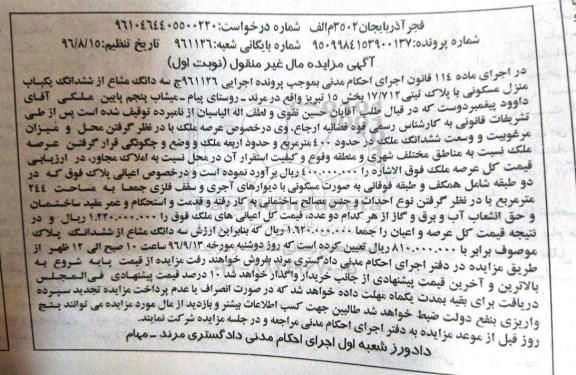 فجر آذربایجان ۳۵۰۲م/الف شماره درخواست: ۹۶۱۰۴۶۴۴۰۵۵۰۰۲۲۰
شماره پرونده: ۹۵۰۹۹۸۴۱۵۳۹۰۰۱۳۷ شماره بایگانی شعبه: ۹۶۱۱۲۶ تاریخ تنظیم: ۹۶/۸/۱۵
آگهی مزایده مال غیر منقول (نوبت اول)
در اجرای ماده ۱۱۴ قانون اجرای احکام مدنی بموجب پرونده اجرایی ۹۶۱۱۲۶ج سه دانگ مشاع از ششدانگ یکباب
منزل مسکونی با پلاک ثبتی ۱۷/۷۱۲ بخش ۱۵ تبریز واقع در مرند ـ روستای پیام ـ میشاب پنجم پایین ملکی آقای
داوود پیغمبردوست که در قبال طلب آقایان حسین تقوی و لطف اله الیاسیان از نامبرده توقیف شده است پس از طی
تشریفات قانونی به کارشناس رسمی قوه قضائیه ارجاع، وی درخصوص عرصه ملک با در نظر گرفتن محل و میزان
مرغوبیت و وسعت ششدانگ ملک در حدود ۴۰۰ مترمربع و حدود اربعه ملک و وضع و چگونگی قرار گرفتن عرصه
ملک نسبت به مناطق مختلف شهری و منطقه وقوع و کیفیت استقرار آن در محل نسبت به املاک مجاور، در ارزیابی
قیمت کل عرصه ملک فوق الاشاره را ۴۰۰.۰۰۰.۰۰۰ ریال برآورد نموده است و درخصوص اعیانی پلاک فوق که در
دو طبقه شامل همکف و طبقه فوقانی به صورت مسکونی با دیوارهای آجری و سقف فلزی جمعا به مساحت ۲۴۴
مترمربع با در نظر گرفتن نوع احداث و جنس مصالح ساختمانی به کار رفته و قدمت و استحکام و عمر مفید ساختمان
و حق انشعاب آب و برق و گاز از هر کدام دو عدد، قیمت کل اعیانی های ملک فوق را ۱.۲۲۰.۰۰۰.۰۰۰ ریال و در
نتیجه قیمت کل عرصه و اعیان را جمعا ۱.۶۲۰.۰۰۰.۰۰۰ ریال که بنابراین ارزش سه دانگ مشاع از ششدانگ پلاک
موصوف برابر با ۸۱۰.۰۰۰.۰۰۰ ریال تعیین گردده است که روز دوشنبه مورخه ۹۶/۹/۱۳ ساعت ۱۰ صبح الی ۱۲ ظهر از
طریق مزایده در دفتر اجرای احکام مدنی دادگستری مرند بفروش خواهند رفت مزایده از قیمت پایه شروع به
بالاترین و آخرین قیمت پیشنهادی از جانب خریدار واگذار خواهد شد ۱۰ درصد قیمت پیشنهادی فی المجلس
دریافت برای بقیه بمدت یکماه مهلت داده خواهد شد که در صورت انصراف یا عدم پرداخت مزایده تجدید سپرده
واریزی بنفع دولت ضبط خواهد شد طالبین جهت کسب اطلاعات بیشتر و بازدید از مال مورد مزایده می توانند پنج
روز قبل از موعد مزایده به دفتر اجرای احکام مدنی مراجعه و در جلسه مزایده شرکت نمایند.
دادورز شعبه اول اجرای احکام مدنی دادگستری مرند ـ مهام